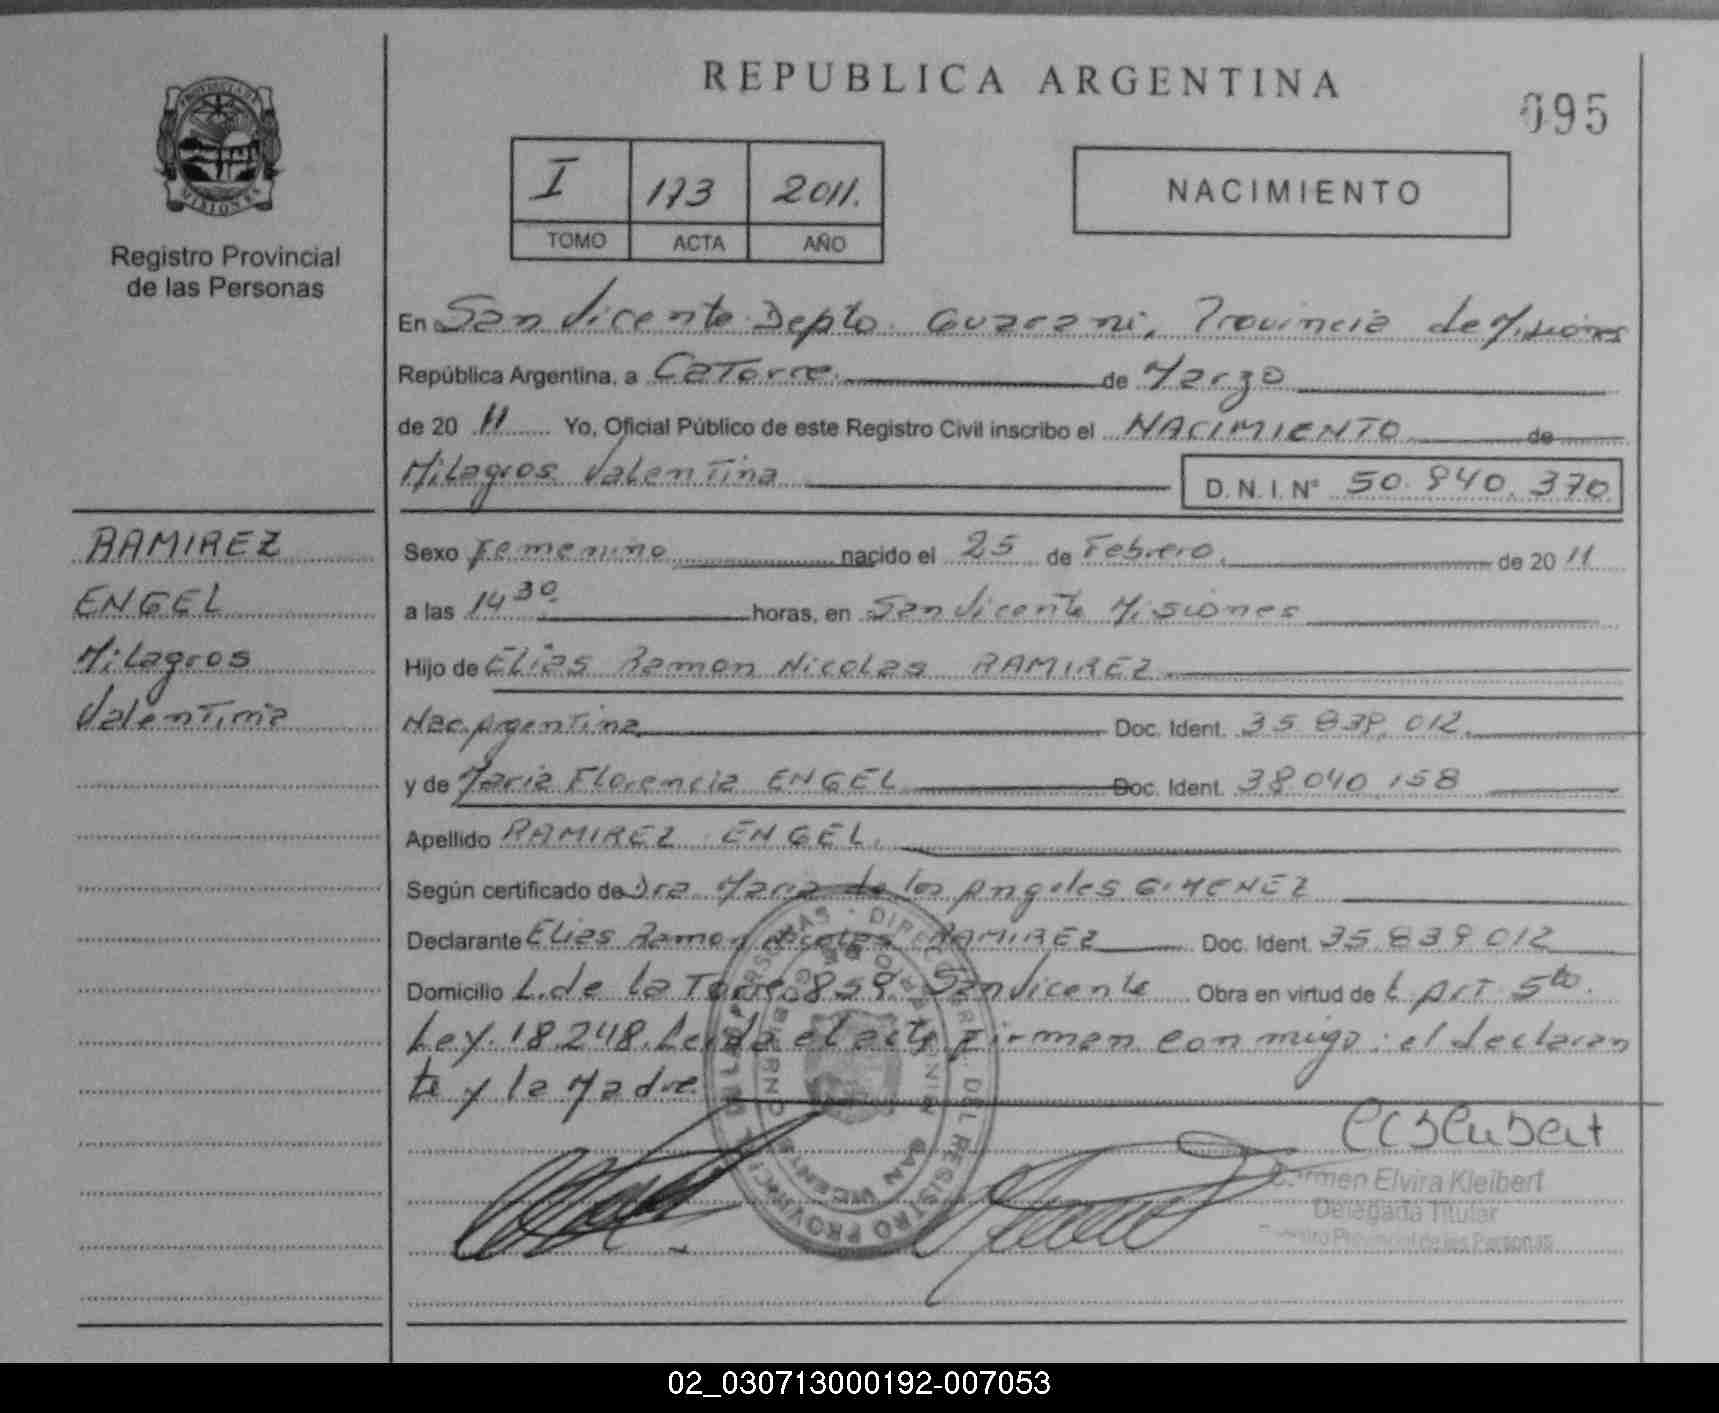 REPUBLICA ARGENTINA
095
PROVINCIA DE MISIONES
Registro Provincial
de las Personas
I 173 2011.
TOMO ACTA AÑO
NACIMIENTO
En San Vicente Depto. Guarani, Provincia de Misiones
República Argentina, a Catorce de Marzo
de 20 11 Yo, Oficial Público de este Registro Civil inscribo el NACIMIENTO de
Milagros Valentina D.N.I. N° 50.940.370
RAMIREZ
ENGEL
Milagros
Valentina
Sexo Femenino nacido el 25 de Febrero. de 20 11
a las 14 30 horas, en San Vicente Misiones
Hijo de Elias Ramon Nicolas RAMIREZ
Nac. Argentina Doc. Ident. 35.839.012.
y de Maria Florencia ENGEL Doc. Ident. 38 040 158
Apellido RAMIREZ ENGEL.
Según certificado de Dra. Maria de los Angeles GIMENEZ
Declarante Elias Ramon Nicolas RAMIREZ Doc. Ident. 35.839 012
Domicilio L. de la Torre 859. San Vicente Obra en virtud de Art 5to.
Ley. 18.248. Leida el acta firman conmigo: el declaran
te y la Madre.
Carmen Elvira Kleibert
Delegada Titular
Registro Provincial de las Personas
DIRECC. GRAL. DEL REGISTRO PROVINCIAL DE LAS PERSONAS
SAN VICENTE
02_030713000192-007053